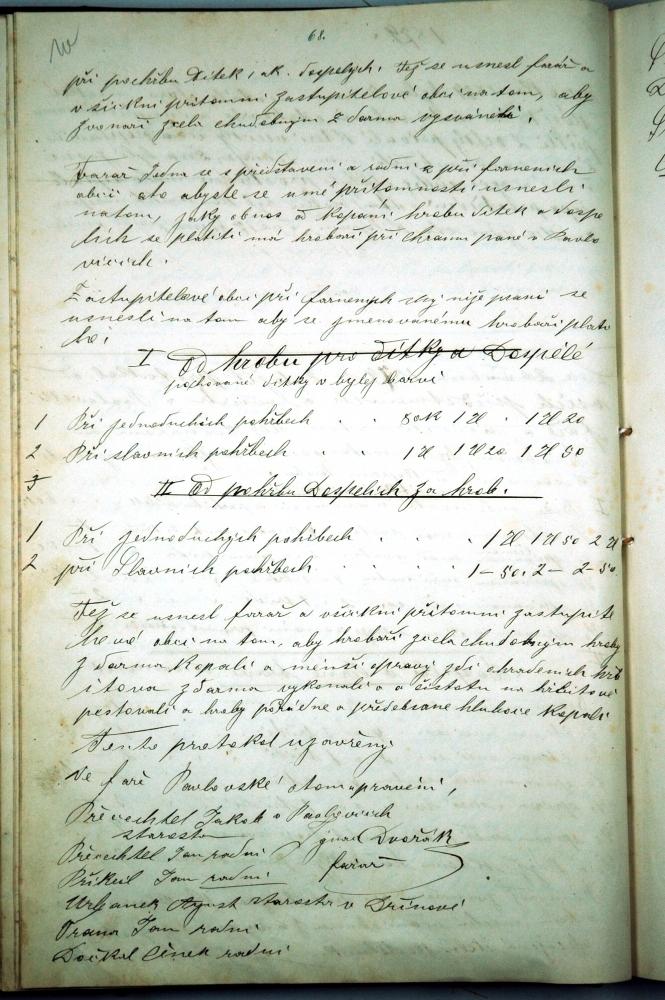 68.
při pochřbu Ditek, i ak. dospelych. Též se usnesl farář a
všickni přitomni zastupitelové obci na tom, aby
zvonaři zcela chudobnym z darma vyzváněli.
Farář jedna se s představeni a radni z při farnenich
obci oto abyste se u mé přitomnosti usnesli
na tom, jaky obnos od kopani hrobu ditek a dospe
lich se platiti má hrobaři při chramu pané v Pavlo
vicich.
Zastupitelové obci při farnenych vyj nije psani se
usnesli na tom aby se jmenovanému hrobaři plati
lo:
I Od hrobu pro Ditky a Dospělé
pochované ditky v bylej barvi
1 Při jednoduchich pohřbech . . 80k 1 zl . 1 zl 20
2 Při slavnich pohřbech . . 1 zl 1 zl 20 1 zl 50
3 II Od pohřbu Dospelich za hrob.
1 Při jednoduchych pohřbech . . . 1 zl 1 zl 50 2 zl
2 při Slavnich pohřbech . . . 1 – 50. 2 – 2 – 50.
Též se usnesl farář a všickni přitomni zastupite
lové obci na tom, aby hrobaři zcela chudobnym hroby
z darma kopali a menši opravy zdi ohradenich
zdarma vykonali a o čistotu na hřbitově
pestovali a hroby pořádne a předebsane hluboce kopali
Tento protokol uzavřeny
Ve faře Pavlovské
Převechtel Jakob v Pavlovicich
starosta
Ignac Dvořák
farař
Převechtel Jan radni
Přikril Jan radni
Urbanek Agust starosta v Dřinové
Vrana Jan radni
Dočkal Činek radni